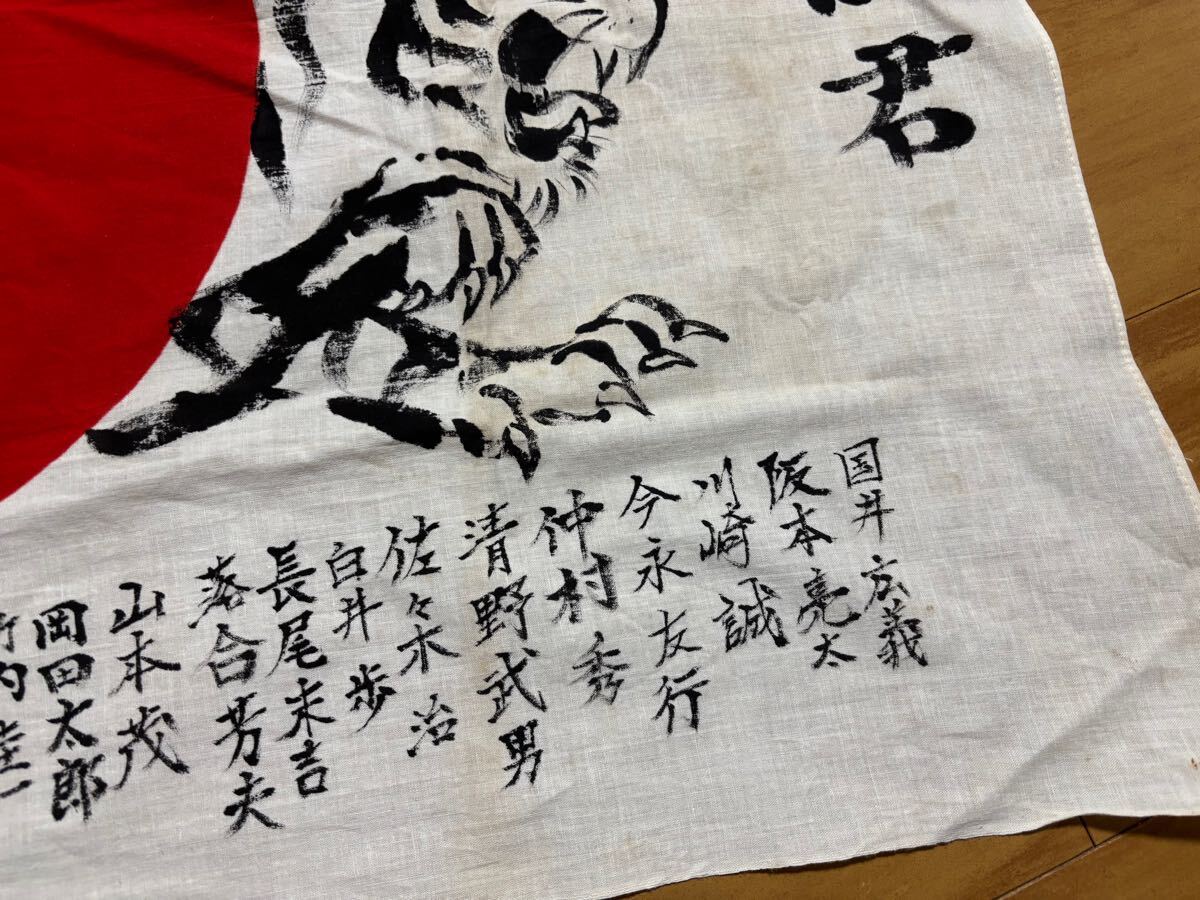 君
国井広義
阪本亮太
川崎誠
今永友行
仲村秀
清野武男
佐々木治
白井歩
長尾末吉
落合芳夫
山本茂
岡田太郎
内